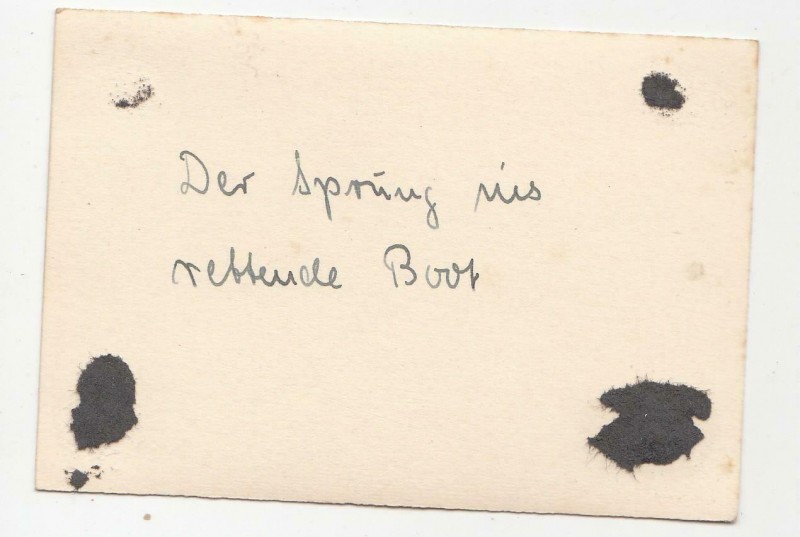 Der Sprung ins
rettende Boot